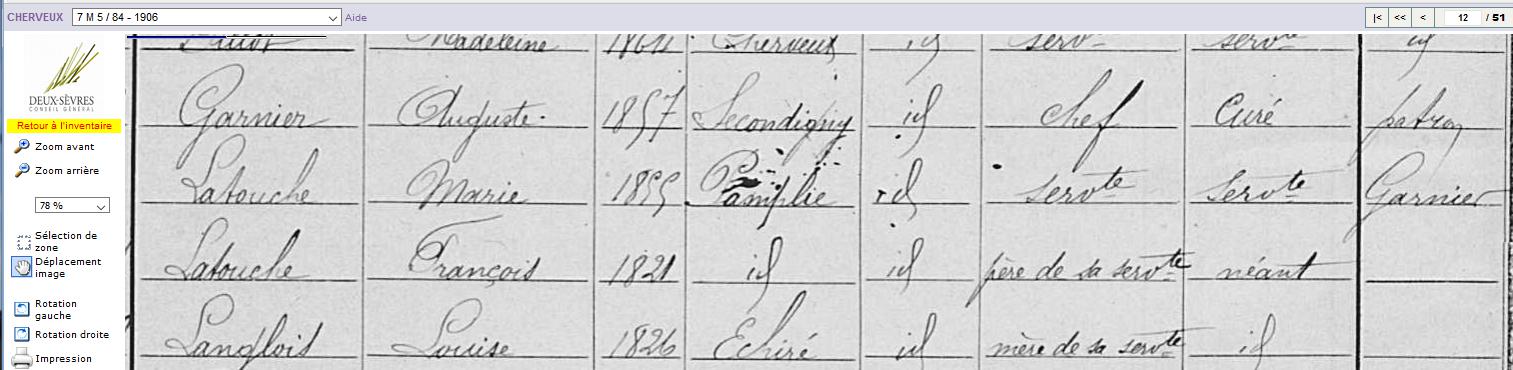 CHERVEUX 7 M 5 / 84 - 1906 Aide |< << < 12 / 51
DEUX-SÈVRES
CONSEIL GÉNÉRAL
Retour à l'inventaire
Zoom avant
Zoom arrière
78 %
Sélection de
zone
Déplacement
image
Rotation
gauche
Rotation droite
Impression
Madeleine Cherveux id servte servte id
Garnier Auguste 1857 Secondigny id chef Curé patron
Latouche Marie 1855 Pamplie id servte servte Garnier
Latouche François 1821 id id père de sa servte néant
Langlois Louise 1826 Echiré id mère de sa servte id